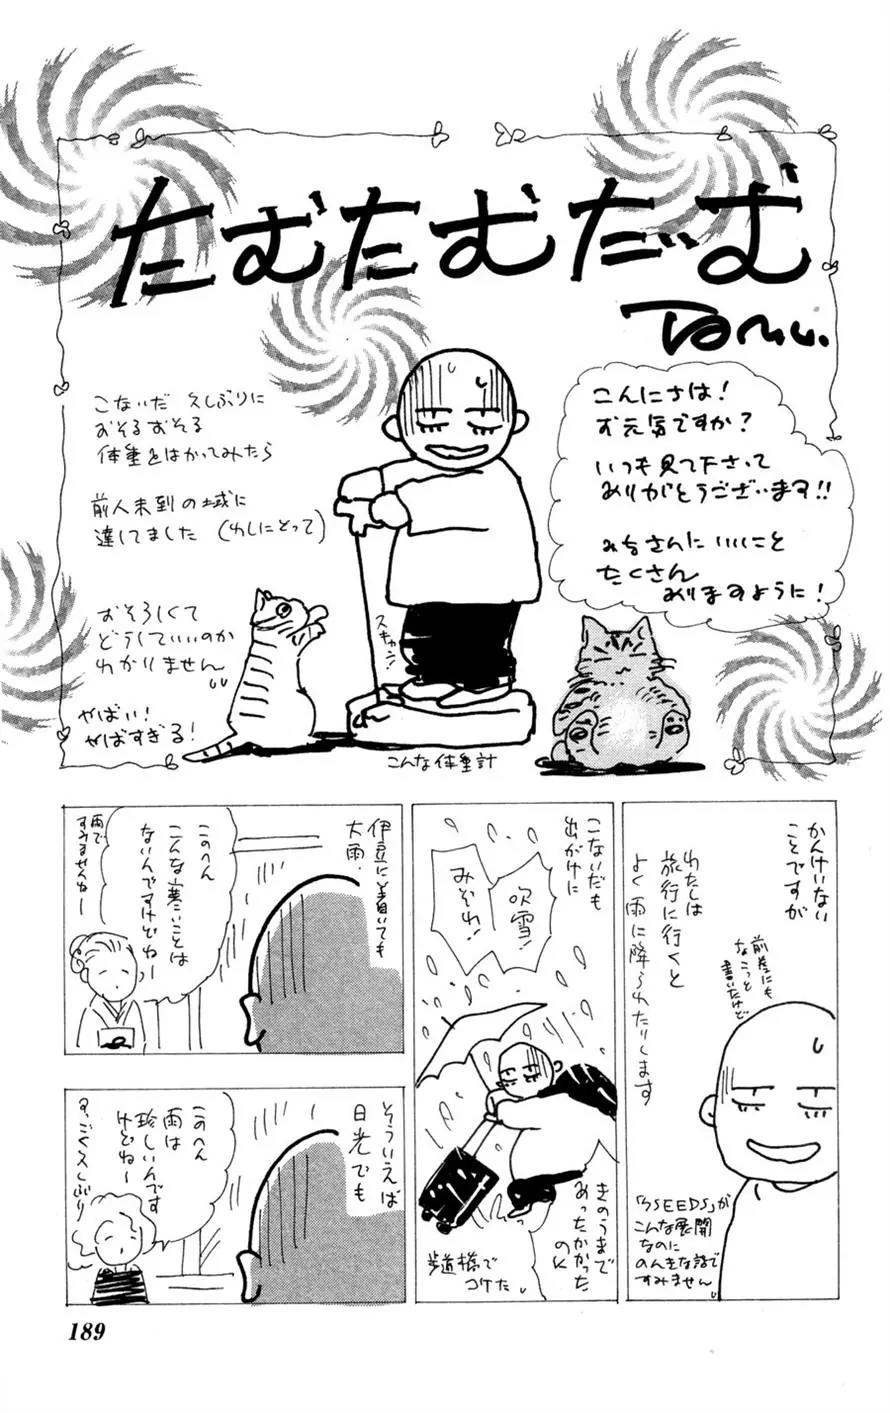 たむたむだーむ
Tamu.
こんにちは!
お元気ですか?
いつも見て下さって
ありがとうございます!!
みなさんにいいこと
たくさん
ありますように!
こないだ 久しぶりに
おそるおそる
体重をはかってみたら
前人未到の域に
達してました(わしにとって)
おそろしくて
どうしていいのか
わかりません
やばい!
やばすぎる!
こんな体重計
かんけいない
ことですが
わたしは
旅行に行くと
よく雨に降られたりします
前巻にも
書いたけど
「7SEEDS」が
こんな展開
なのに
のんきな話で
すみません
こないだも
出がけに
吹雪!
みぞれ!
きのうまで
あったかかった
のに
歩道橋で
コケた
伊豆に着いても
大雨.
このへん
こんな寒いことは
ないんですけどねー
雨で
すみませんねー
そういえば
日光でも
このへん
雨は
珍しいんです
けどねー
すごく久しぶり
189